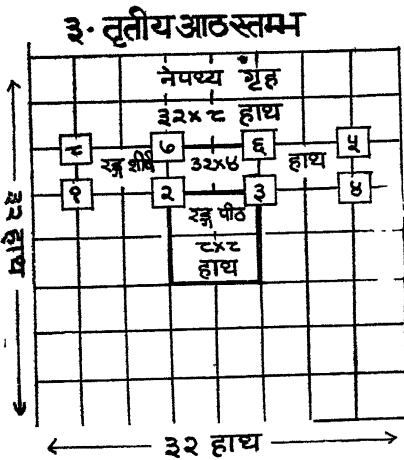 ३. तृतीय आठ स्तम्भ
नेपथ्य गृह
३२×८ हाथ
८ ७ ६ ५
रङ्ग शीर्ष ३२×४ हाथ
१ २ ३ ४
रङ्ग पीठ
८×८
हाथ
३२ हाथ
३२ हाथ